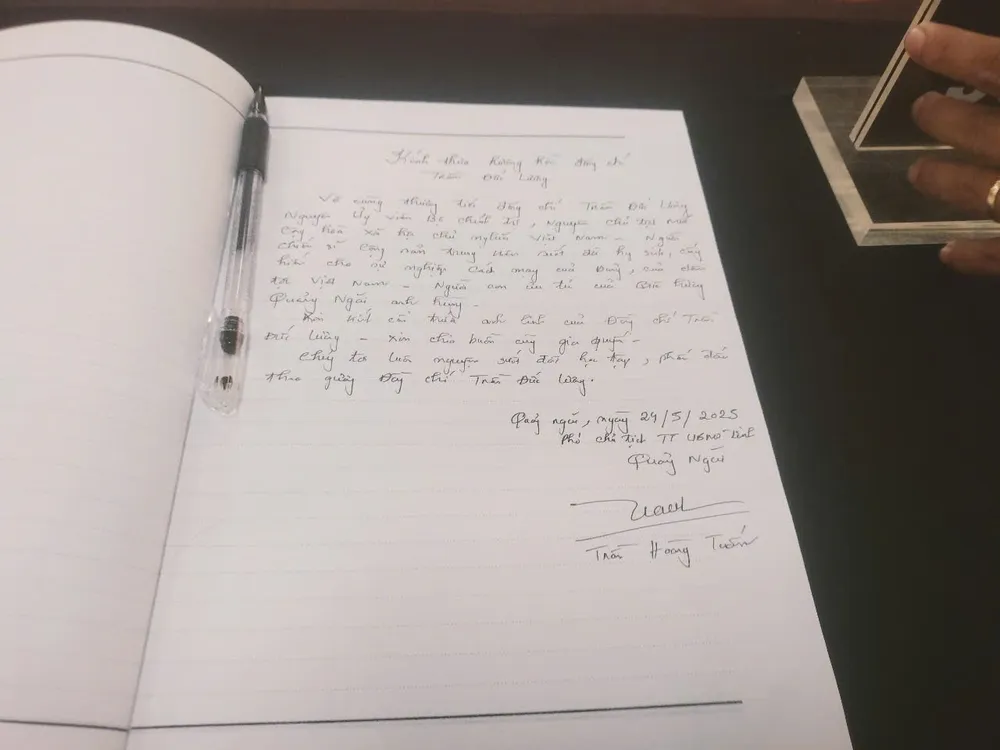 Kính thưa hương hồn đồng chí
Trần Đức Lương
Vô cùng thương tiếc đồng chí Trần Đức Lương
Nguyên Ủy viên Bộ chính trị, Nguyên chủ tịch nước
Cộng hòa xã hội chủ nghĩa Việt Nam - Người
chiến sĩ Cộng sản trung kiên suốt đời hy sinh, cống
hiến cho sự nghiệp Cách mạng của Đảng, của dân
tộc Việt Nam - Người con ưu tú của quê hương
Quảng Ngãi anh hùng -
Xin anh linh của Đồng chí Trần
Đức Lương - Xin chia buồn cùng gia quyến -
Chúng tôi luôn nguyện suốt đời học tập, phấn đấu
theo gương Đồng chí Trần Đức Lương.
Quảng ngãi, ngày 24/5/2025
Phó chủ tịch TT UBND tỉnh
Quảng Ngãi
Trần Hoàng Tuấn